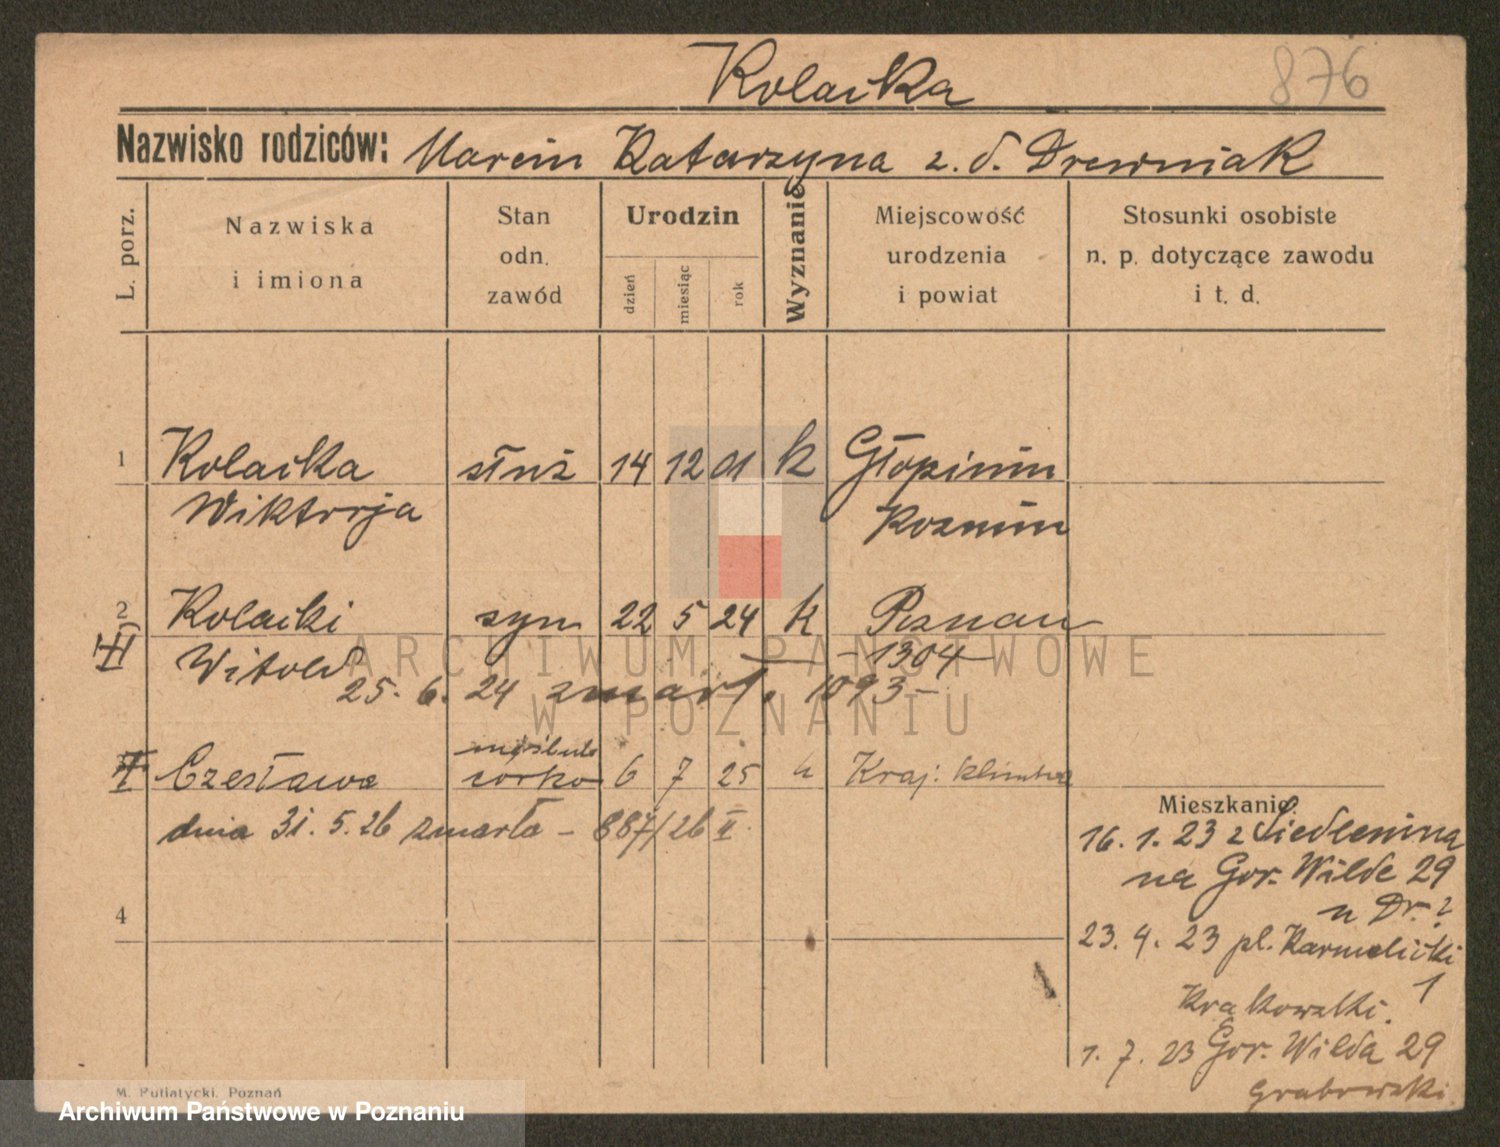 Kolaika 876
Nazwisko rodziców: Marcin Katarzyna z. d. Drewniak
L. porz.
Nazwiska i imiona
Stan odn. zawód
Urodzin
dzień miesiąc rok
Wyznanie
Miejscowość urodzenia i powiat
Stosunki osobiste n. p. dotyczące zawodu i t. d.
1 Kolaika służ 14 12 01 k
Wiktorja Koźmin
2 Kolaiki syn 22 5 24 k Poznan
II) Witold — -1304-
25. 6. 24 zmarł. 1093-
I Czesława córka 6 7 25 k Kraj:
dnia 31. 5. 26 zmarła - 887/26 II
Mieszkanie
16. 1. 23 z Siedlemina
na Gor. Wilde 29
4 u Dr. ?
23. 4. 23 pl. Karmelicki
1
Krakowski.
1. 7. 23 Gor. Wilda 29
Grabowski
M. Putiatycki, Poznań
ARCHIWUM PAŃSTWOWE
W POZNANIU
Archiwum Państwowe w Poznaniu